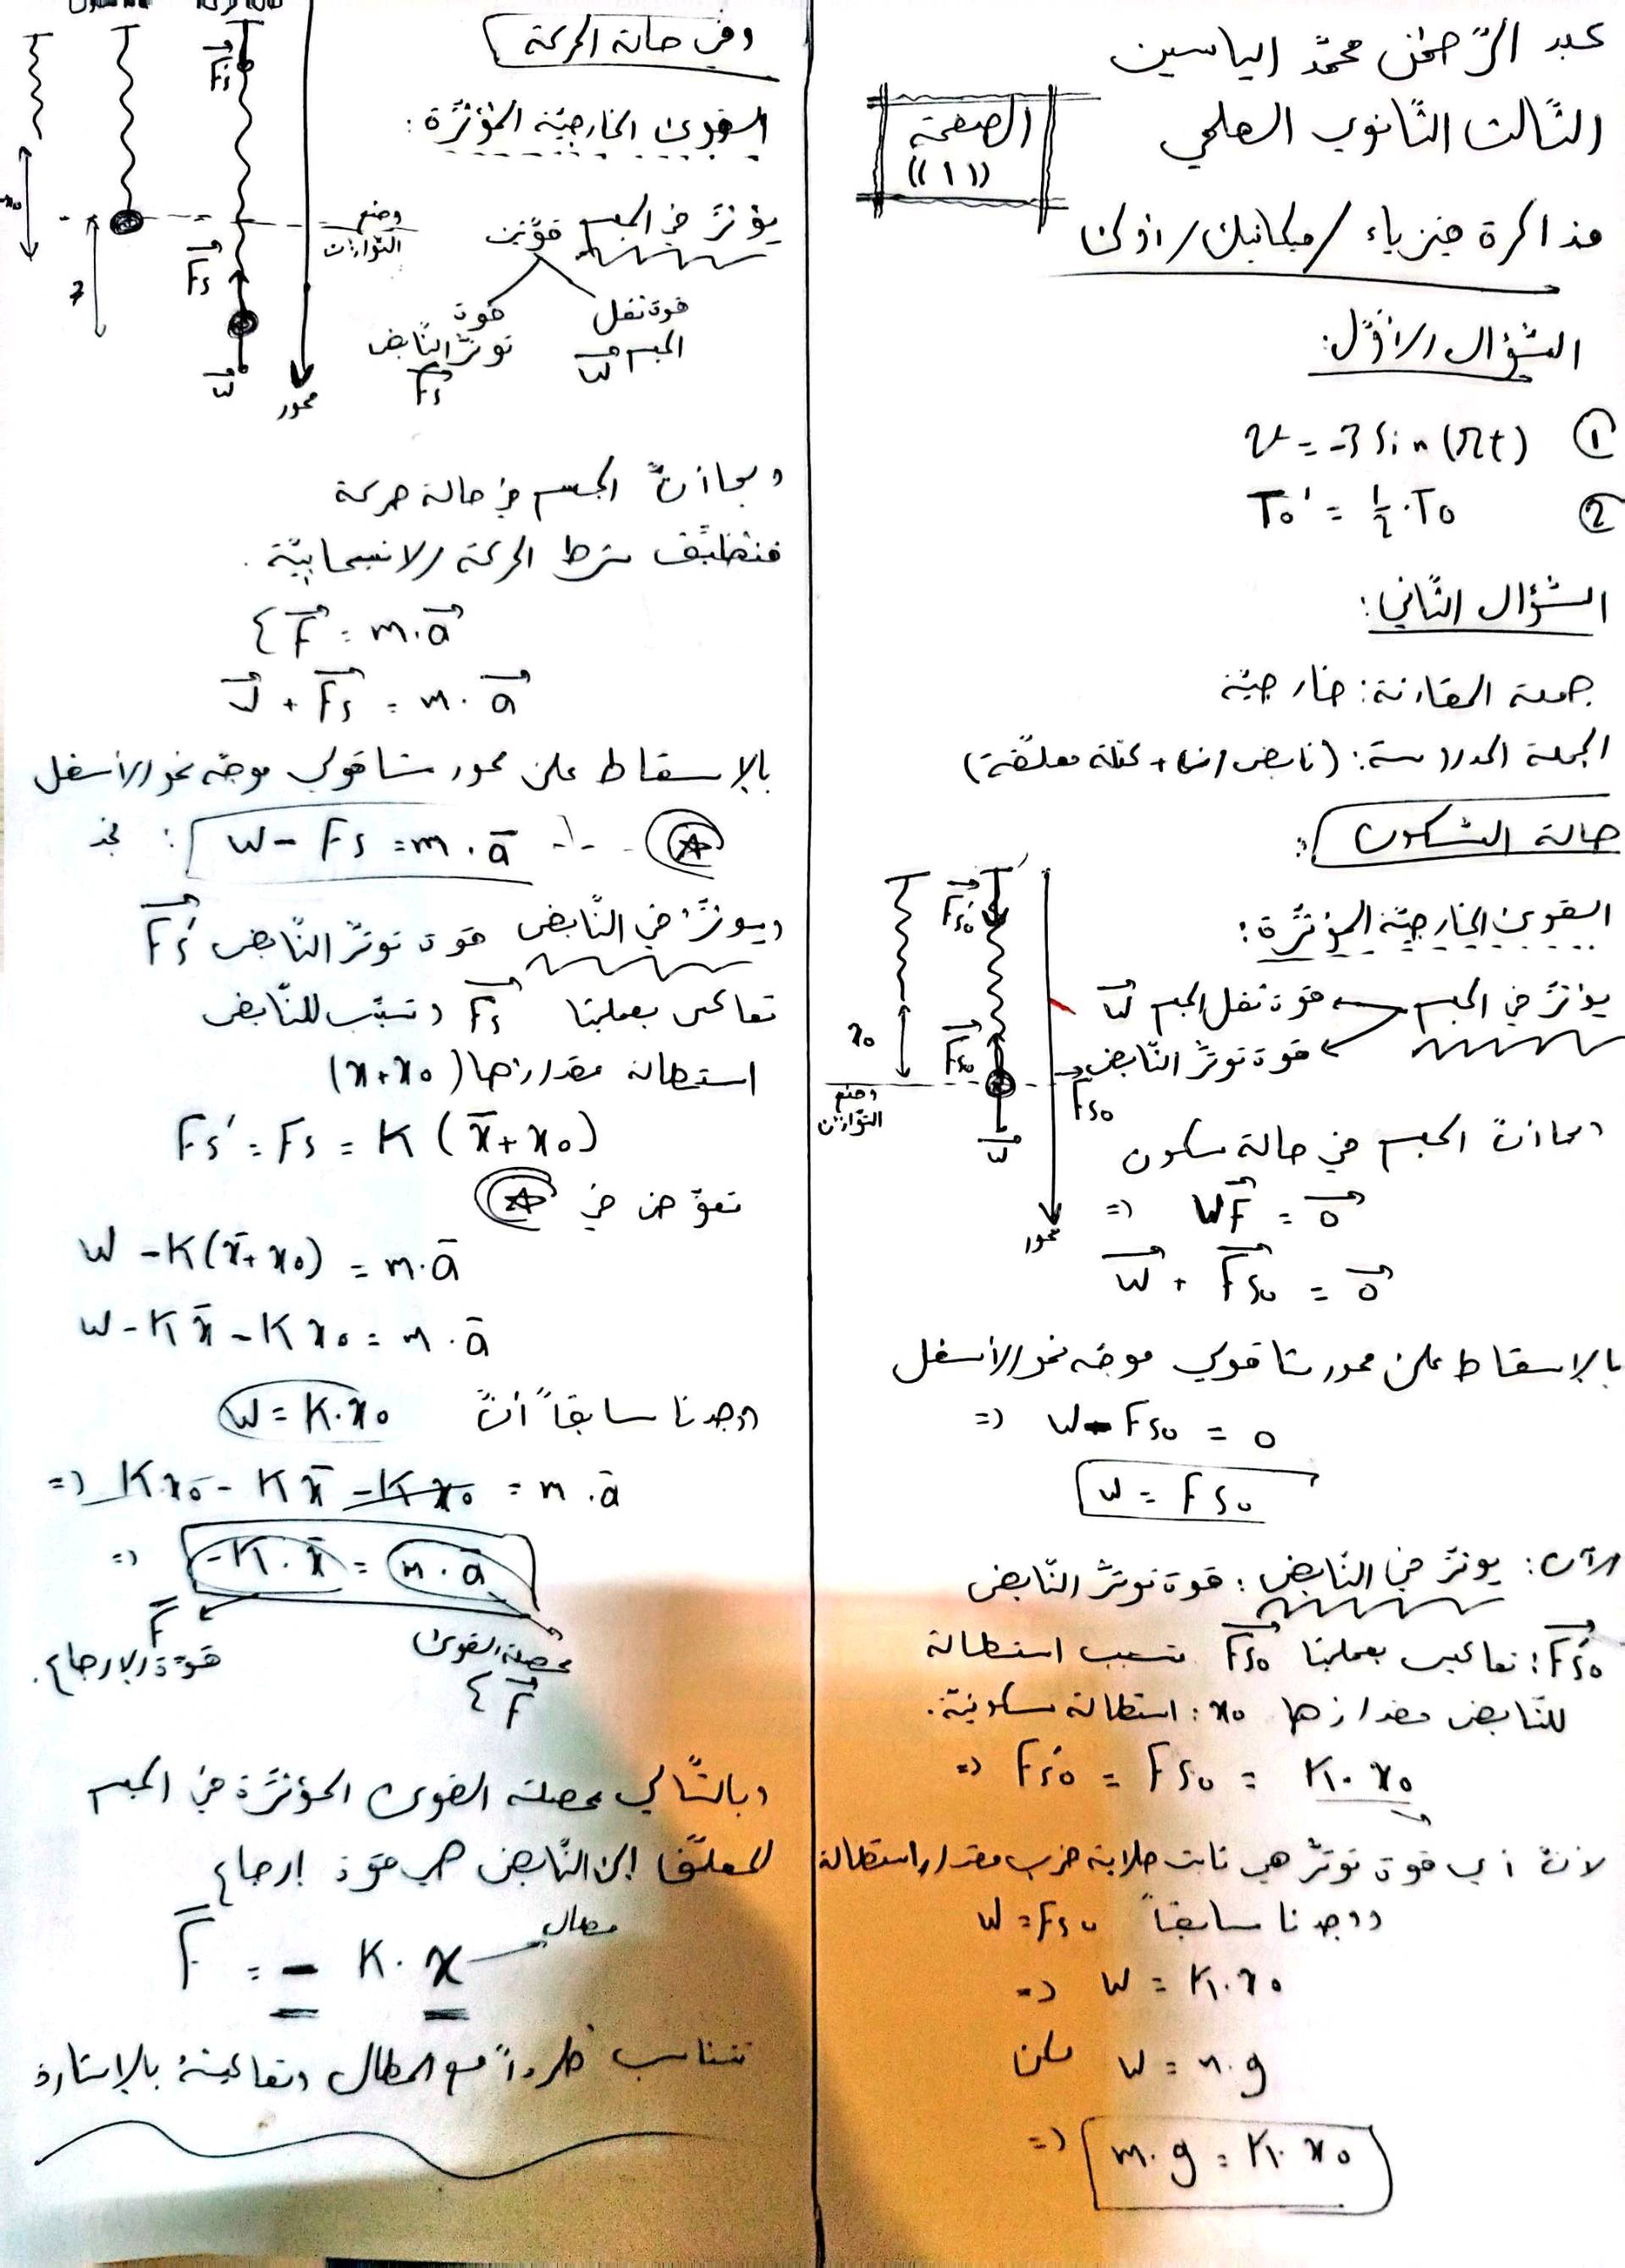 عبد الرّحمن محمّد الياسين
الثّالث الثّانوي العلمي
الصفحة
((١))
مذاكرة فيزياء / ميكانيك / أولى
السّؤال الأوّل:
① v = -3 Sin(πt)
② T₀' = 1/2 . T₀
السّؤال الثّاني:
جملة المقارنة: خارجيّة
الجملة المدروسة: (نابض + كتلة معلّقة)
حالة السّكون:
القوى الخارجيّة المؤثّرة:
يؤثّر في الجسم قوة ثقل الجسم W
قوة توتّر النّابض Fs₀
Fs₀'
Fs₀
x₀
وضع
التّوازن
W
محور
وبما أنّ الجسم في حالة سكون
=> F = 0
W + Fs₀ = 0
بالإسقاط على محور شاقولي موجّه نحو الأسفل
=> W - Fs₀ = 0
W = Fs₀
الآن: يؤثّر في النّابض: قوة توتّر النّابض
Fs₀': تسبب استطالة
للنّابض مقدارها x₀: استطالة سكونيّة.
=> Fs₀' = Fs₀ = K . x₀
لأنّ أي قوة توتّر هي ثابت صلابة ضرب مقدار استطالة
ووجدنا سابقاً W = Fs₀
=> W = K . x₀
لكن W = m . g
=> m . g = K . x₀
وفي حالة الحركة
القوى الخارجيّة المؤثّرة:
يؤثّر في الجسم قوّتين
قوة ثقل
الجسم W
قوة
توتّر النّابض
Fs
Fs'
وضع
التّوازن
Fs
W
محور
وبما أنّ الجسم في حالة حركة
فنطبّق شرط الحركة الانسحابيّة.
Σ F = m . a
W + Fs = m . a
بالإسقاط على محور شاقولي موجّه نحو الأسفل
نجد: W - Fs = m . a
ويؤثّر في النّابض قوة توتّر النّابض Fs'
Fs وتسبّب للنّابض
استطالة مقدارها (x + x₀)
Fs' = Fs = K (x + x₀)
نعوّض في
W - K(x + x₀) = m . a
W - Kx - Kx₀ = m . a
وجدنا سابقاً أنّ W = K . x₀
=> Kx₀ - Kx - Kx₀ = m . a
=> -K . x = m . a
F
قوّة الإرجاع.
محصلة القوى
Σ F
وبالتّالي محصلة القوى المؤثّرة في الجسم
المعلّق إلى النّابض هي قوة إرجاع
F = - K . x مطال
تتناسب طرداً مع المطال وتعاكسه بالإشارة